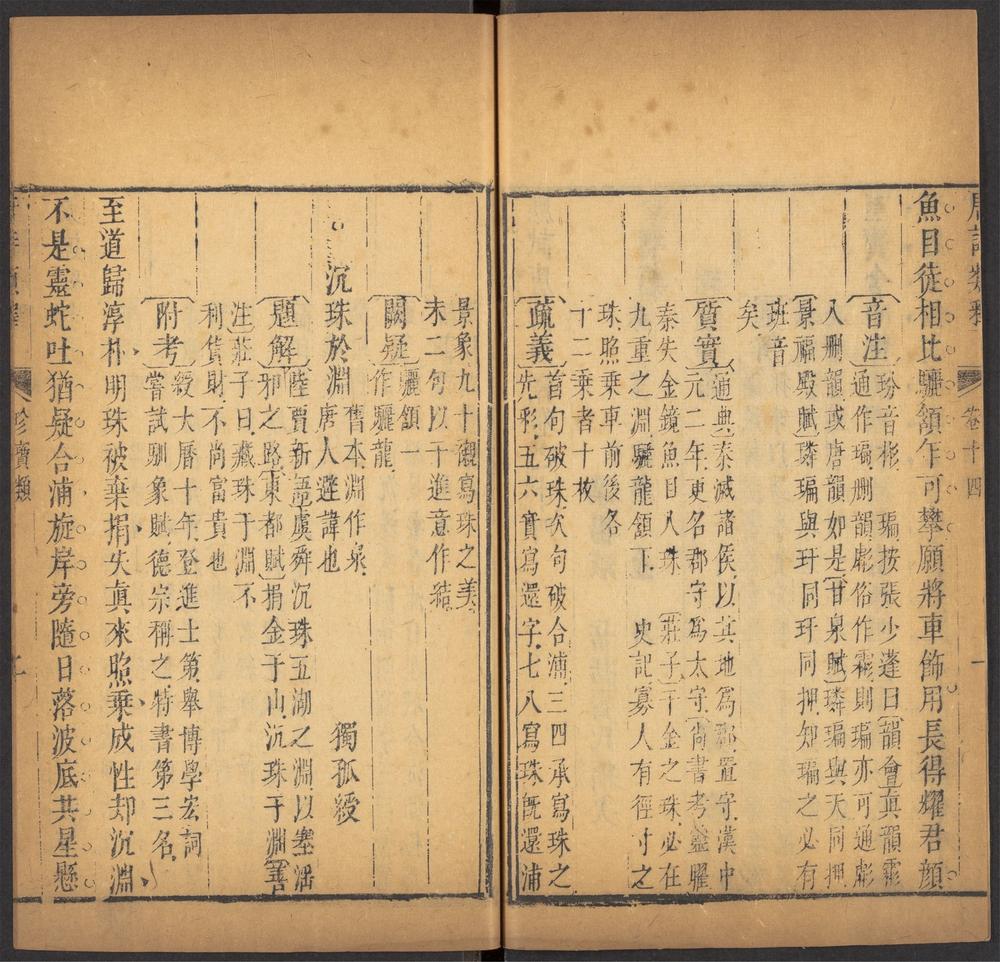 卷十四
一
魚目徒相比驪頷乍可攀願將車飾用長得耀君顔
音注
玢音彬
㻞按張少蓬曰韻會眞韻霦
通作㻞刪韻彪俗作霦則㻞亦可通彪
入刪韻或唐韻如是甘泉賦璘㻞與天同押
景福殿賦璘㻞與玕同玕同押知㻞之必有
班音
矣
質實
通典秦滅諸侯以其地爲郡置守漢中
元二年更名郡守爲太守尙書考靈曜
秦失金鏡魚目入珠
莊子千金之珠必在
九重之淵驪龍頷下
史記寡人有徑寸之
珠照乘車前後各
十二乘者十枚
疏義
首句破珠次句破合浦三四承寫珠之
先彩五六實寫還字七八寫珠旣還浦
景象九十襯寫珠之美
未二句以干進意作結
闕疑
驪頷一
作驪龍
沉珠於淵
舊本淵作泉
唐人避諱也
獨孤綬
題解
陸賈新語虞舜沉珠五湖之淵以塞淫
邪之路東都賦捐金于山沉珠于淵善
注莊子曰藏珠于淵不
利貨財不尚富貴也
附考
綬大曆十年登進士第舉博學宏詞
嘗試馴象賦德宗稱之特書第三名
至道歸淳朴明珠被棄捐失眞來照乘成性却沉淵
不是靈蛇吐猶疑合浦旋岸旁隨日落波底共星懸
珍寶類